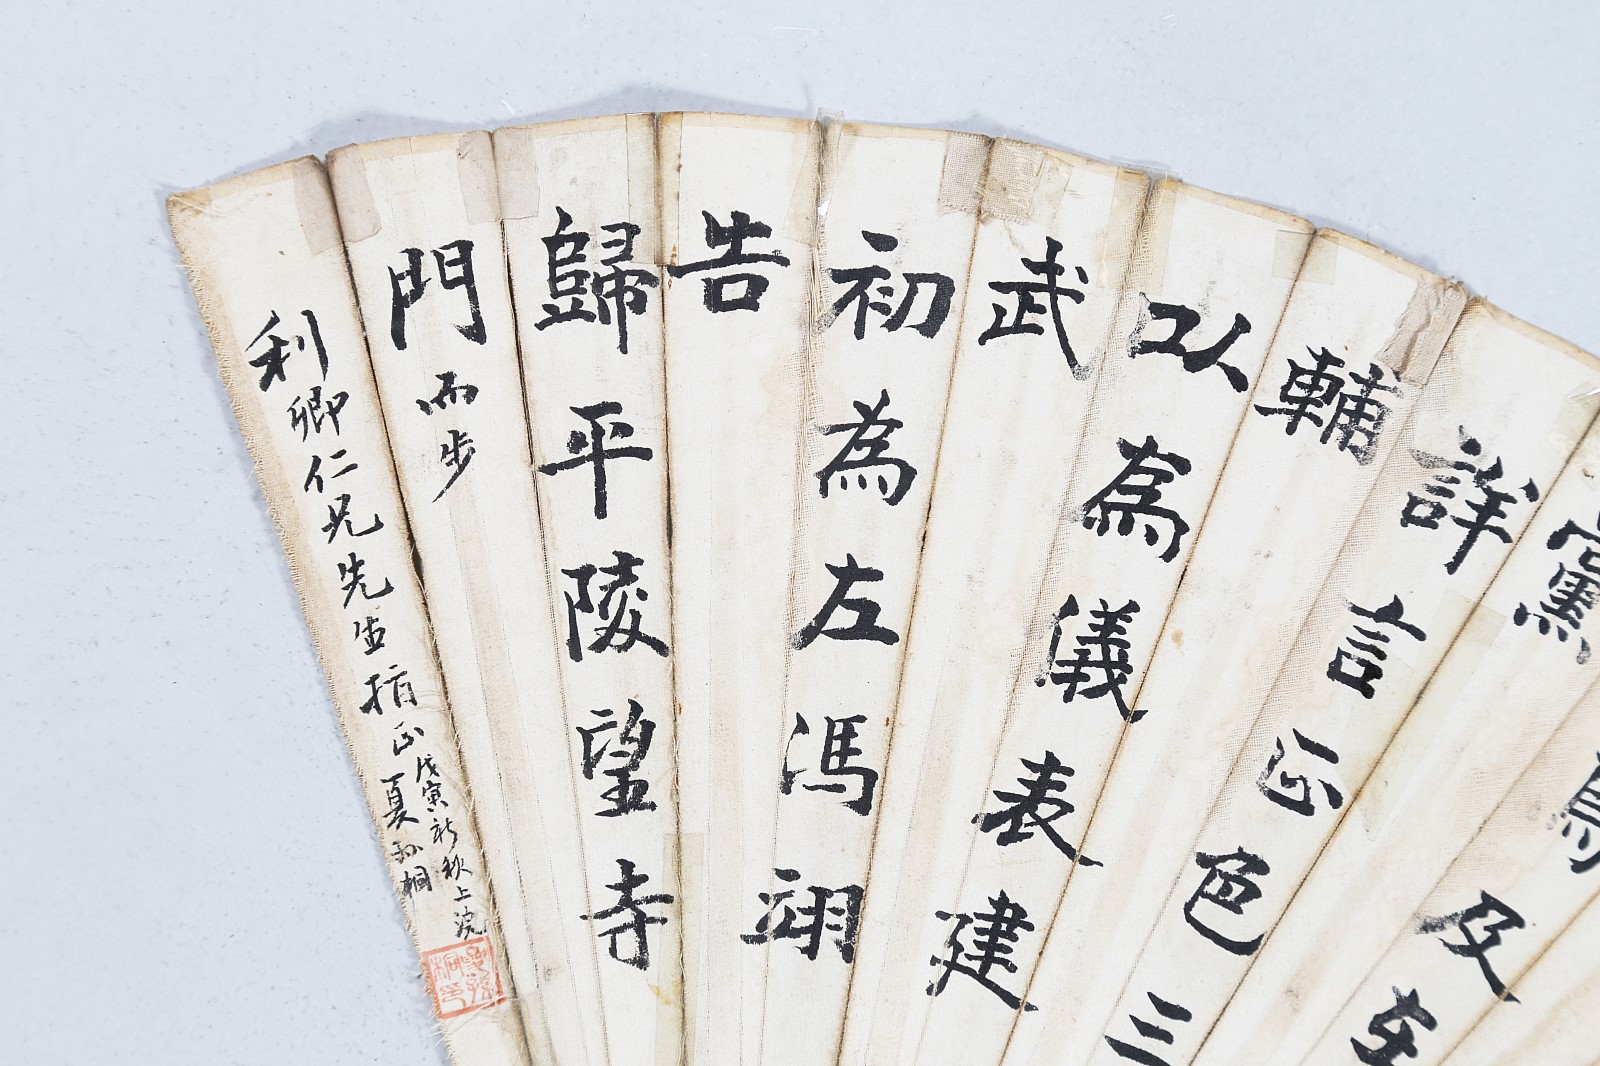 焉及在
黨
詳言正色三
輔
以為儀表建
武
初為左馮翊
告
歸平陵望寺
門而步
利卿仁兄先生指正
戊寅新秋上浣
夏孫桐
夏孫桐印